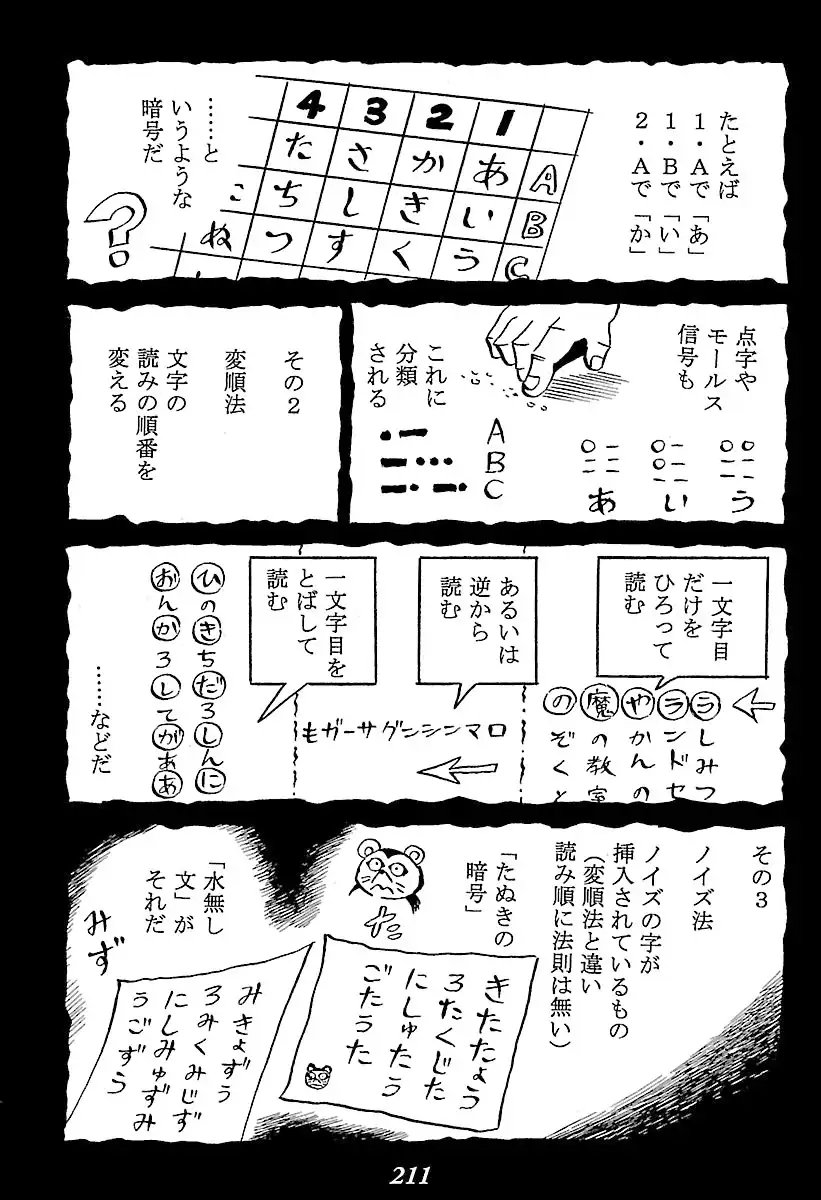 たとえば
1・Aで「あ」
1・Bで「い」
2・Aで「か」
4 3 2 1
た さ か あ A
ち し き い B
ぬ つ す く う C
……と
いうような
暗号だ
?
点字や
モールス
信号も
う
い
あ
A
B
C
これに
分類
される
その2
変順法
文字の
読みの順番を
変える
一文字目
だけを
ひろって
読む
うしみつ
ランドセ
やかんの
魔の教室
のぞくと
あるいは
逆から
読む
もガーサグンシンマロ
一文字目を
とばして
読む
ひのきちだろしんに
おんかろしてがああ
……などだ
その3
ノイズ法
ノイズの字が
挿入されているもの
(変順法と違い
読み順に法則は無い)
「たぬきの
暗号」
た
きたたょう
ろたくじた
にしゅたう
ごたうた
「水無し
文」が
それだ
みず
みきょずう
ろみくみじず
にしみゅずみ
うごずう
211